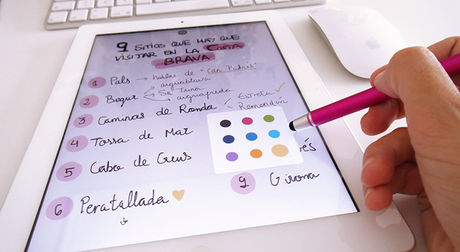 9 SITIOS QUE HAY QUE
VISITAR EN LA COSTA
BRAVA
1 Pals → hablar de + "Can Pubill"
aiguablava
2 Begur Sa Tuna
aiguafreda
3 Caminos de Ronda
4 Tossa de Mar
5 Cabo de Creus
6 Peratallada
9 Girona